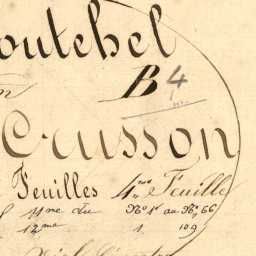 outebel
B 4
Crusson
Feuilles 4me Feuille
11me du No 1 au No 66
12me 1 109